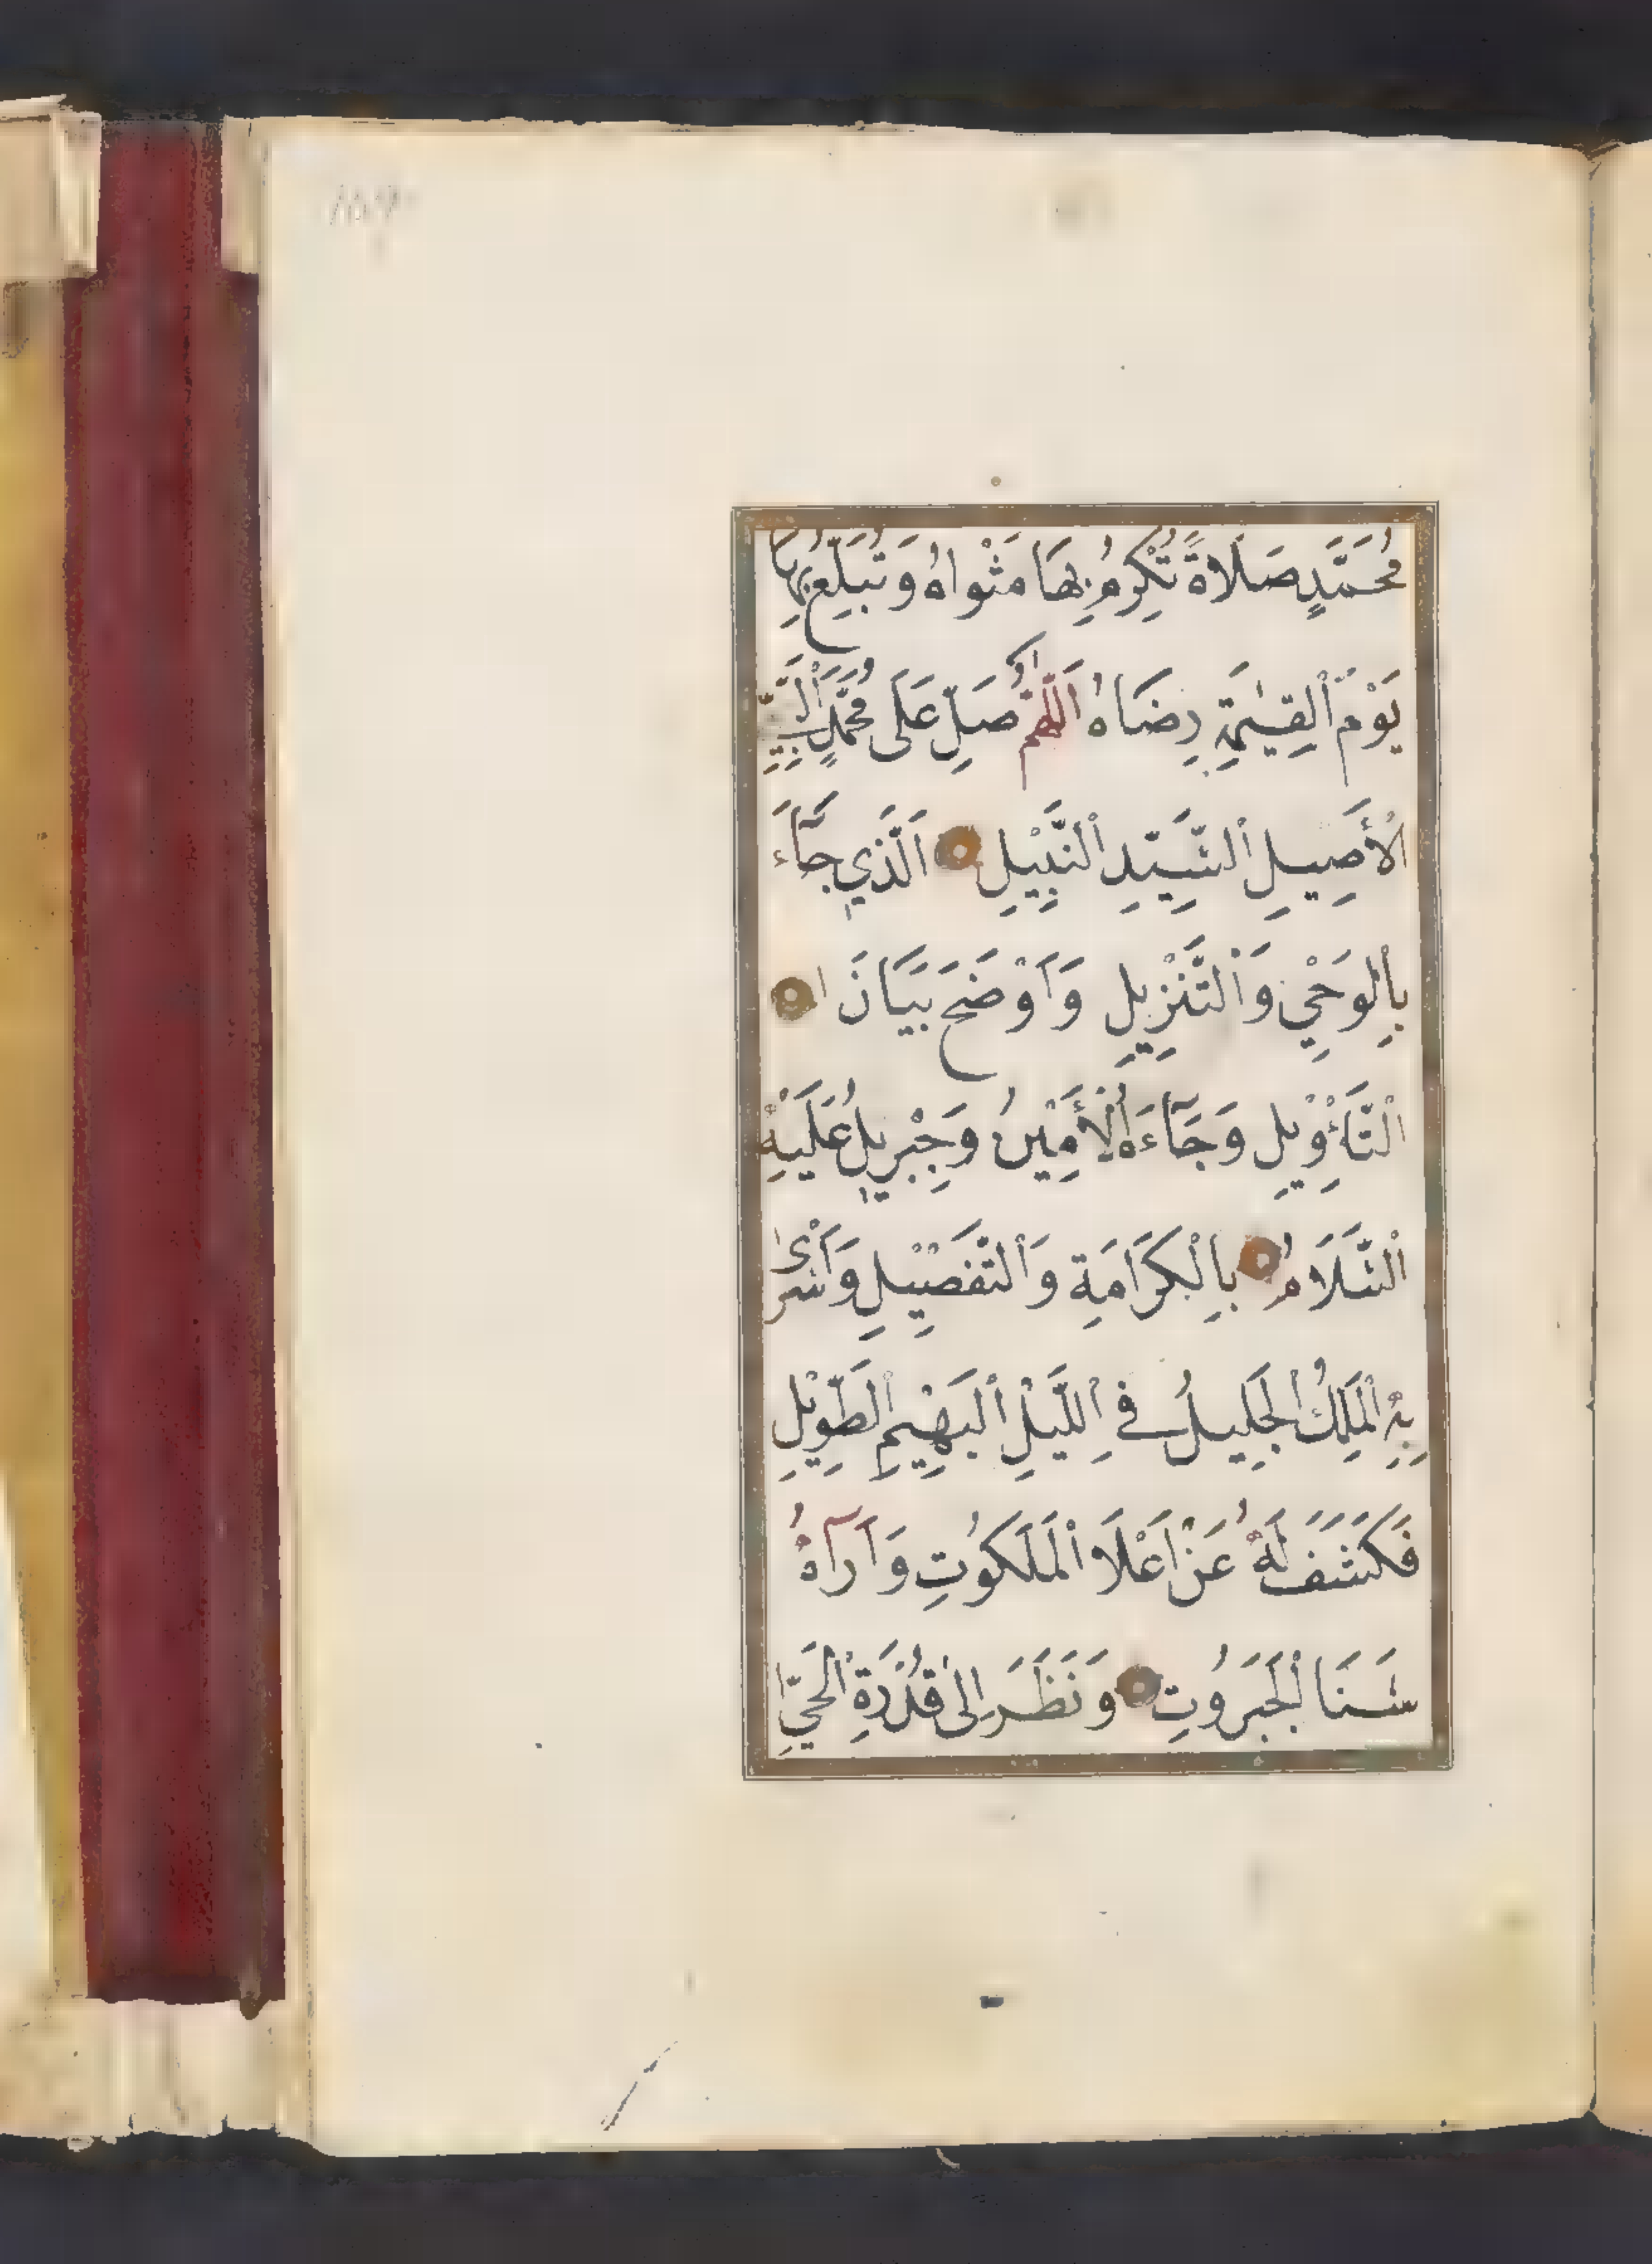 مُحَمَّدٍ صَلَاةً تُكْرِمُ بِهَا مَثْوَاهُ وَتُبَلِّغُ بِهَا
يَوْمَ ٱلْقِيٰمَةِ رِضَاهُ اَللّٰهُمَّ صَلِّ عَلَى مُحَمَّدٍ ٱلنَّبِيِّ
ٱلْأَصِيلِ ٱلسَّيِّدِ ٱلنَّبِيْلِ ۝ اَلَّذِي جَآءَ
بِالْوَحْيِ وَٱلتَّنْزِيلِ وَاَوْضَحَ بَيَانَ ۝
ٱلتَّأْوِيْلِ وَجَآءَهُ ٱلْأَمِيْنُ وَجِبْرِيلُ عَلَيْهِ
ٱلسَّلَامُ ۝ بِالْكَرَامَةِ وَٱلتَّفْصِيْلِ وَاَسْرٰى
بِهِ ٱلْمَلِكُ ٱلْجَلِيلُ فِي ٱللَّيْلِ ٱلْبَهِيْمِ ٱلطَّوِيْلِ
فَكَشَفَ لَهُ عَنْ اَعْلَا ٱلْمَلَكُوتِ وَاَرَاهُ
سَنَا ٱلْجَبَرُوتِ ۝ وَنَظَرَ اِلٰى قُدْرَةِ ٱلْحَيِّ